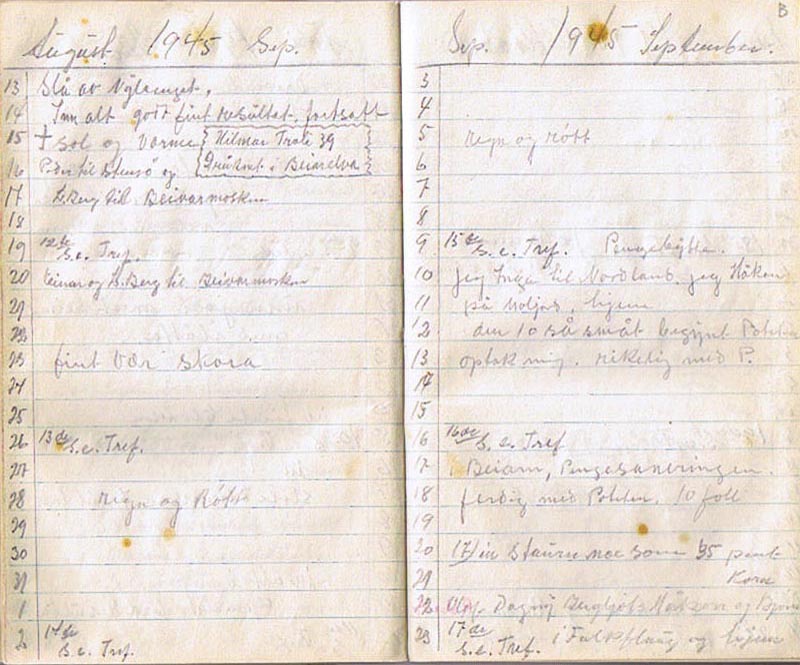 August 1945 Sep.
13 Slå av
14 Inn alt godt fint resultat, fortsatt
15 sol og varme Hilmar Troli 39
16 Peder til Stensø og Druknet i Beiarelva
17 Berg til Beivarmosken
18
19 12te S.e. Tref.
20 Einar og Berg til Beivarmosken
21
22
23 fint Vær skora
24
25
26 13de S.e. Tref.
27
28 regn og Rått
29
30
31
1
2 14de S.e. Tref.
Sep. 1945 September.
B
3
4
5 regn og rått
6
7
8
9 15de S.e. Tref.
10 jeg Inga til Nordland, jeg Håkon
11 på hjem
12 den 10 så småt begynt
13 optak rikelig med P.
14
15
16 16de S.e. Tref
17 Beiarn, Pengesaneringen.
18 ferdig med 10 foll
19
20 17/ som 35
21 Korn
22 Dagny Bergljot Håkon og
23 17de S.e. Tref. i og hjem